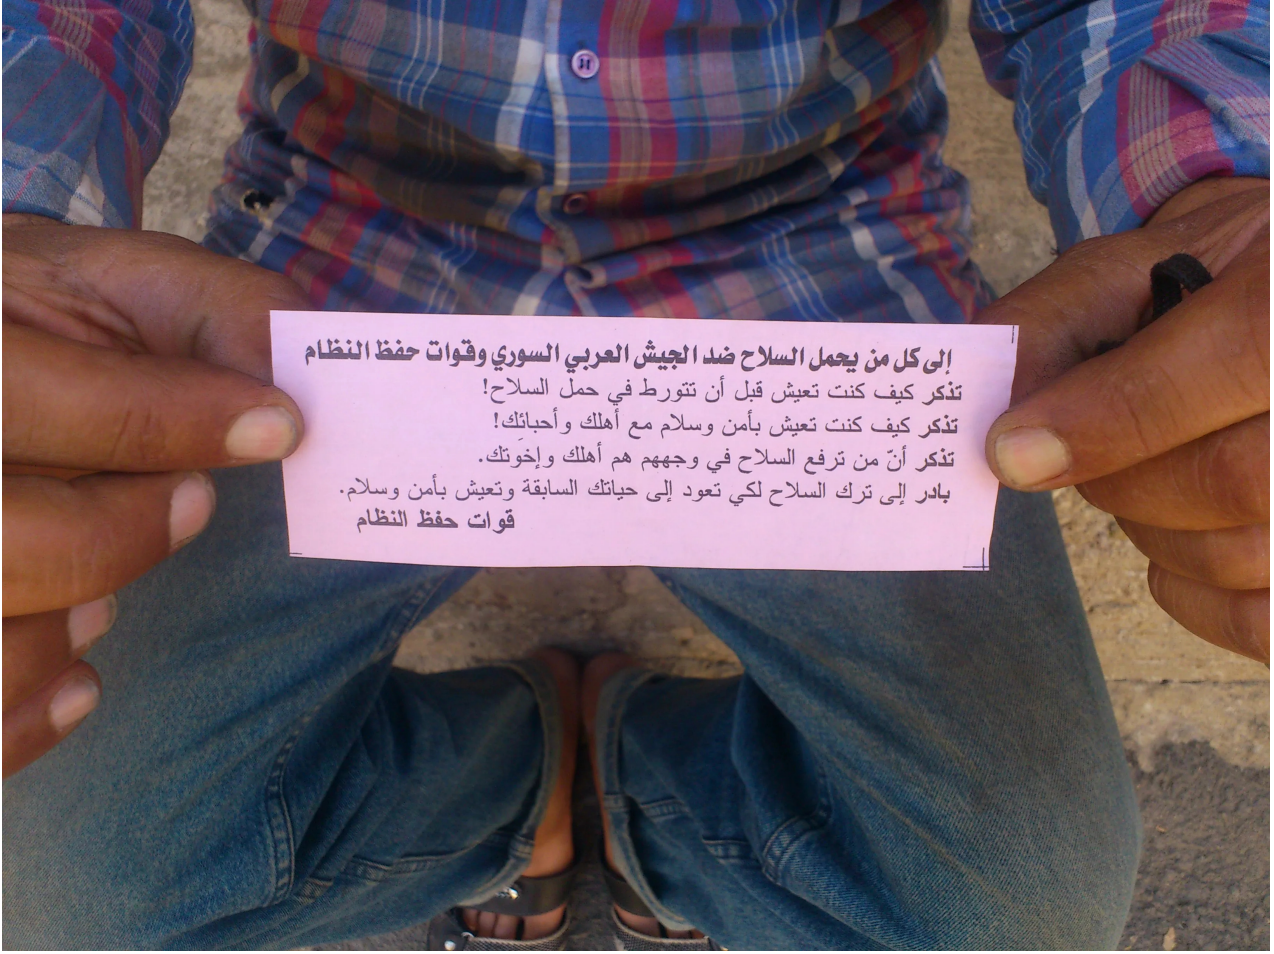 إلى كل من يحمل السلاح ضد الجيش العربي السوري وقوات حفظ النظام
تذكر كيف كنت تعيش قبل أن تتورط في حمل السلاح!
تذكر كيف كنت تعيش بأمن وسلام مع أهلك وأحبائِك!
تذكر أنّ من ترفع السلاح في وجههم هم أهلك وإخوتك.
بادر إلى ترك السلاح لكي تعود إلى حياتك السابقة وتعيش بأمن وسلام.
قوات حفظ النظام